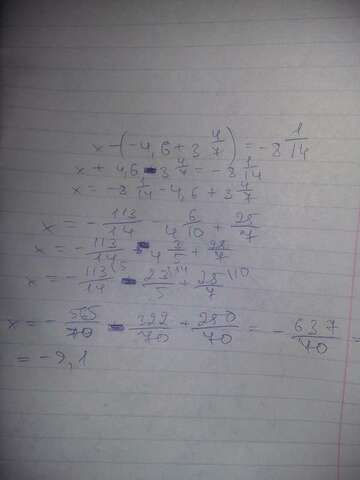 x - (-4,6 + 3 4/7) = -8 1/14
x + 4,6 - 3 4/7 = -8 1/14
x = -8 1/14 - 4,6 + 3 4/7
x = - 113/14 - 4 6/10 + 25/7
x = - 113/14 - 4 3/5 + 25/7
x = - 113/14 (5 - 23/5 (14 + 25/7 (10
x = - 565/70 - 322/70 + 250/70 = - 637/70 =
= -9,1